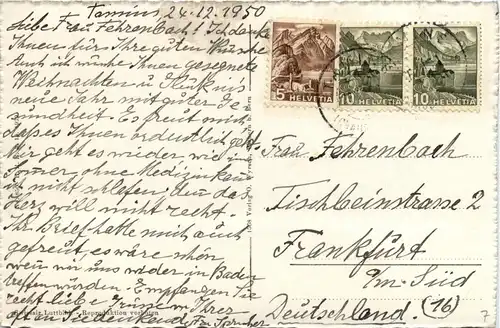 Tamins, 24.12.1950
Liebe Frau Fehrenbach! Ich danke
Ihnen für Ihre guten Wünsche
Auch ich wünche Ihnen gesegnete
Weihnachten u. Glück ins
neue Jahr mit guter Ge
sundheit. Es freut mich
dass es Ihnen ordentlich geht.
Mir geht es wieder wie im
Sommer, ohne Medizin kann
ich nicht schlafen, denn das
Herz, will nicht recht.
Ihr Brief hatte mich auch
gefreut, es wäre schön
wenn wir uns wieder in Baden
treffen würden. Empfangen Sie
recht liebe Grüsse v. Ihrer
Originale Luftbild - Reproduktion verboten
5 HELVETIA
10 HELVETIA
10 HELVETIA
Frau Fehrenbach
Tischbeinstrasse 2
Frankfurt
a/m-Süd
Deutschland. (16)
7